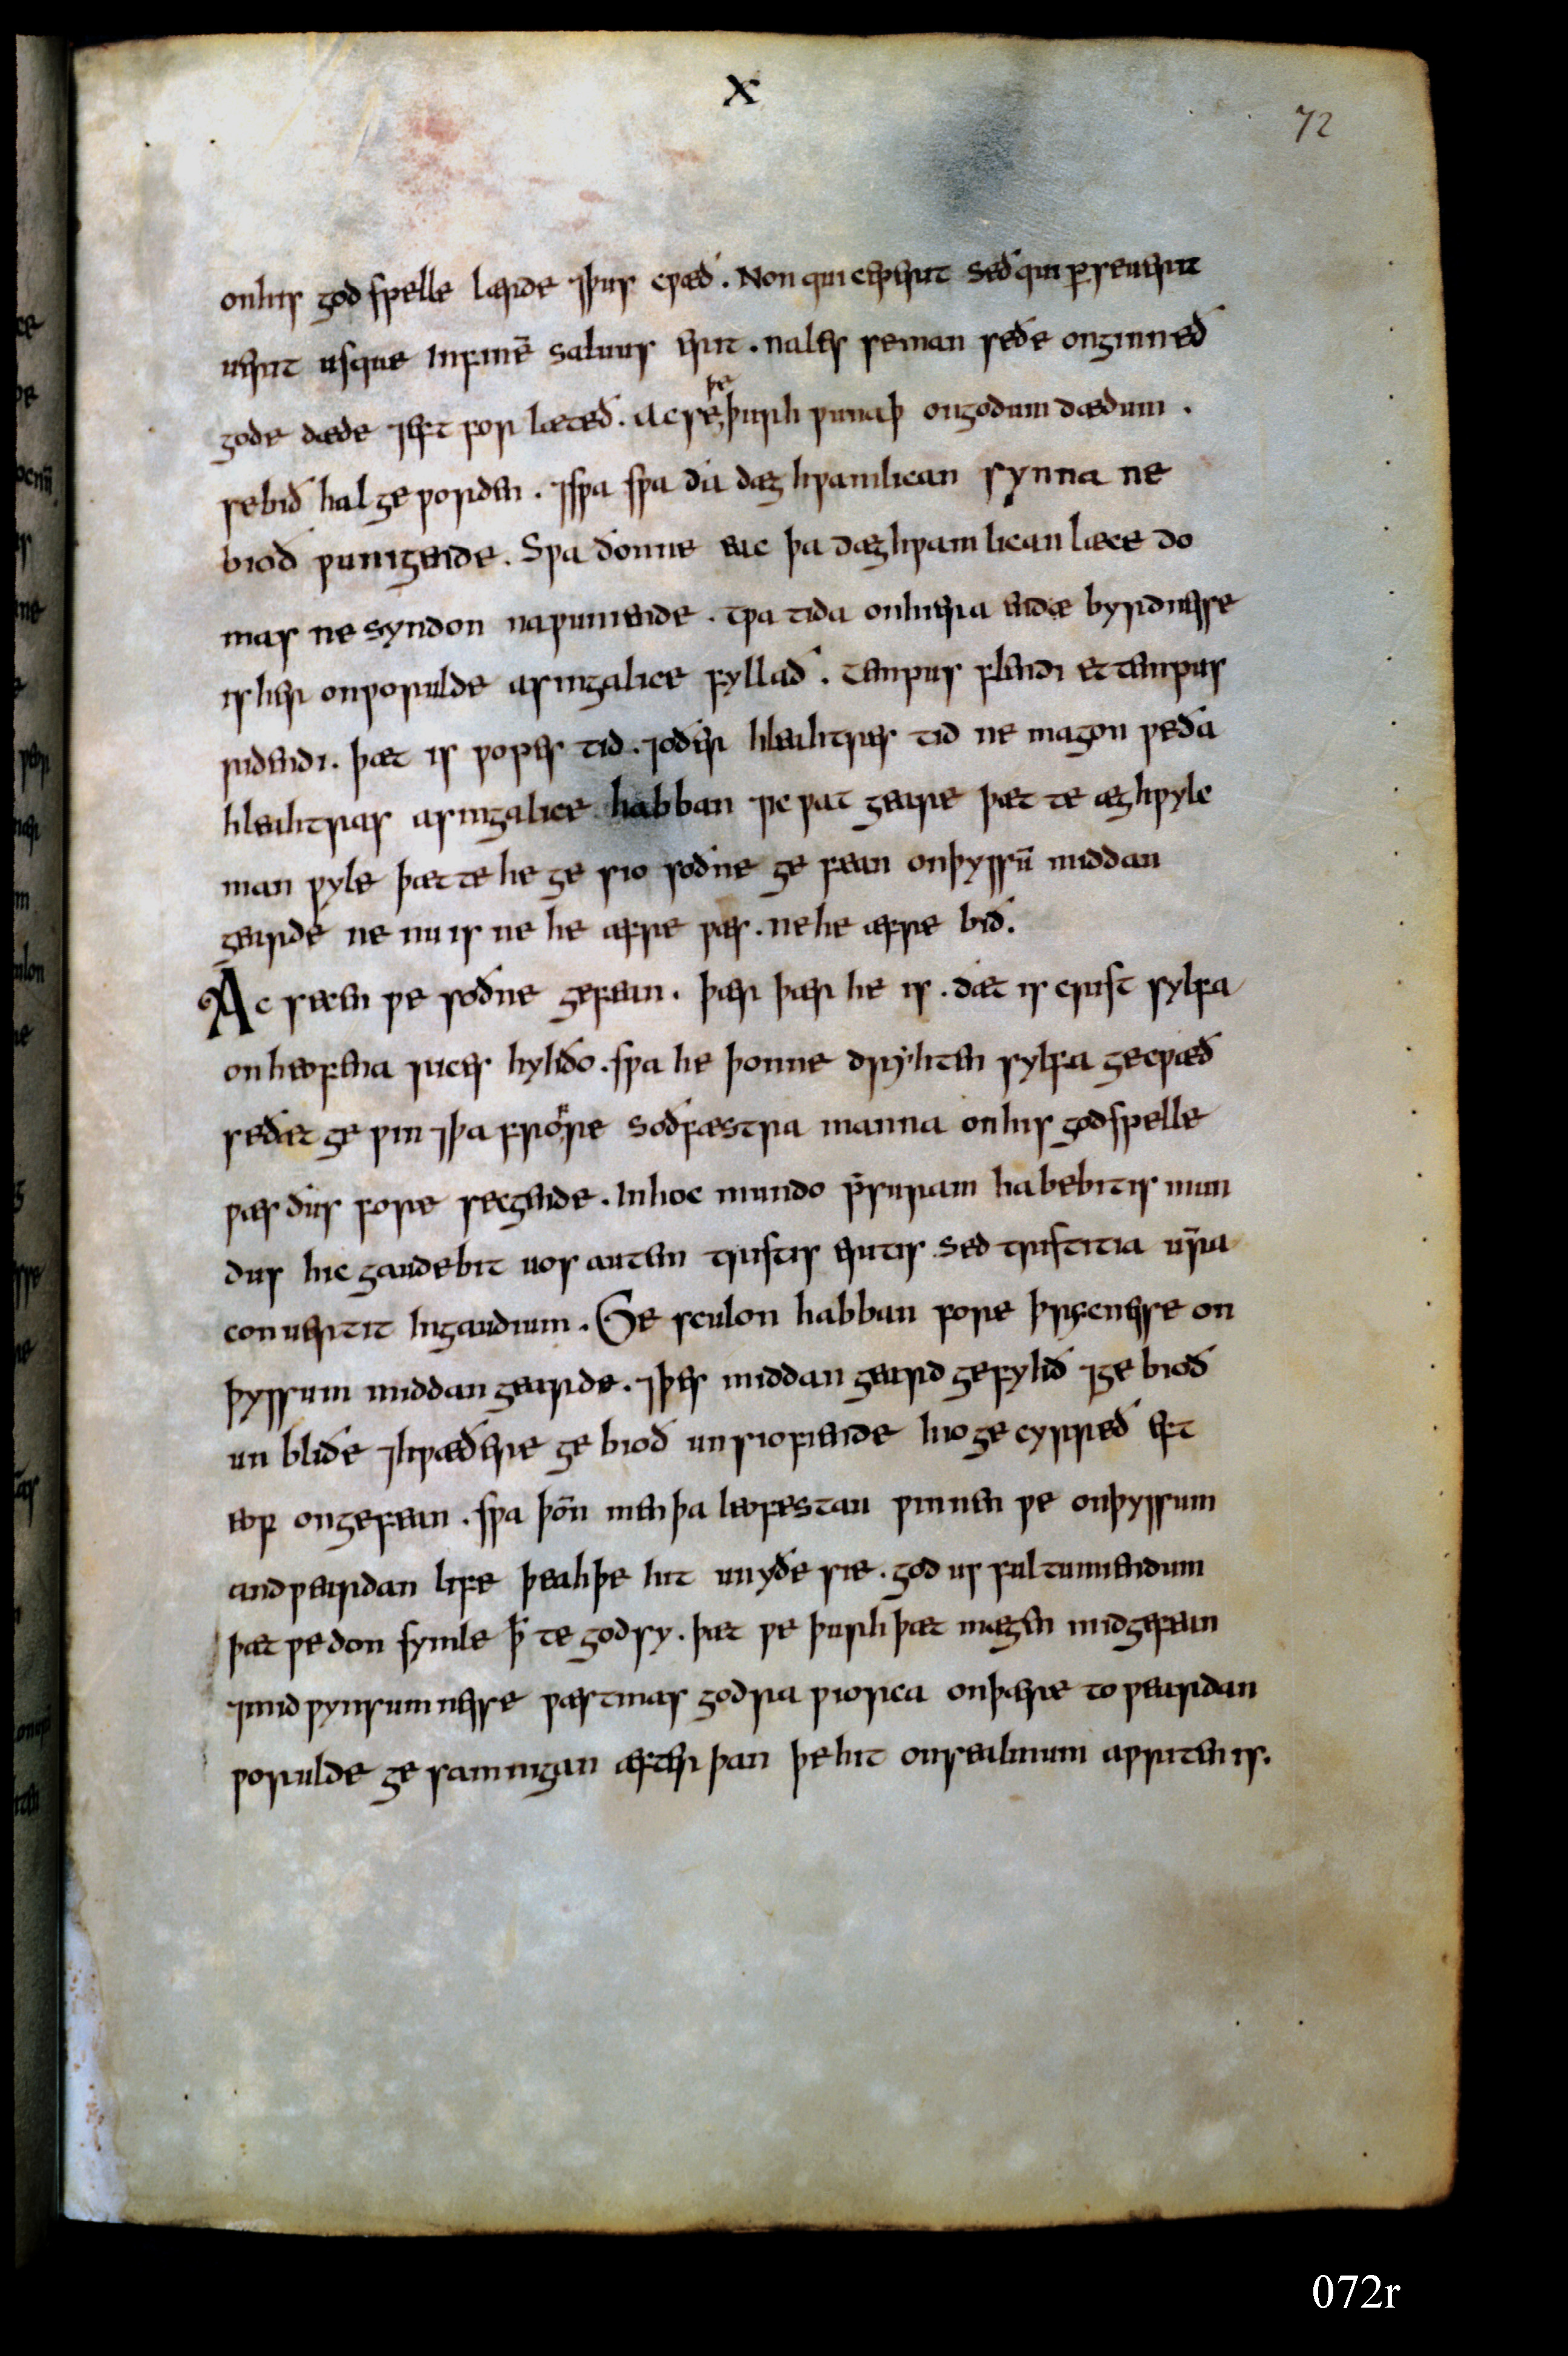 X
72
onhis godspelle lærde ⁊þus cƿæð. Non qui ceperit sed qui ꝑseuerit
uerit usque infinē saluus erit. nales seman seðe onginneð
gode dæde ⁊eft forlæteð. Ac se þe þurh ƿunaþ ongodum dædum.
sebið hal geƿorden. ⁊sƿa sƿa ða dæg hƿamlican synna ne
bioð ƿunigende. Sƿa ðonne eac þa dæghƿamlican læce do
mas ne syndon na ƿuniende. tƿa tida onhiera endebyrdnesse
is her onƿorulde asingalice fyllað. tempus flendi et tempus
ridendi. þæt is ƿopes tid. ⁊oðer hleahtres tid ne magon ƿeða
hleahtras asingalice habban ⁊ic ƿat geare þæt te æghƿylc
man ƿyle þæt te he ge sio soðne ge fean onþyssū middan
gearde ne nu is ne he æfre ƿæs. ne he æfre bið.
Ac secen ƿe soðne gefean. þær þær he is. ðæt is crist sylfa
onheofena rices hyhðo. sƿa he þonne dryhten sylfa gecƿæð
seðæt ge ƿin ⁊þa frofre soðfæstra manna onhis godspelle
ƿæs ðus fore secgende. Inhoc mundo p̄suram habebitis mun
dus hic gaudebit uos autem tristis eritis sed tristitia ur̄a
conuertit ingaudium. Ge sculon habban fore þrycnesse on
þyssum middangearde. ⁊þes middangeard gefyhð ⁊ge bioð
un bliðe ⁊hƿæðere ge bioð unrofiende hio ge cyrreð eft
eoƿ ongefean. sƿa þoñ men þa leofestan ƿinnen ƿe onþyssum
andƿeardan life þeahþe hit unyðe sie. god us fultumiendum
þæt ƿe don symle ꝥ te god sy. þæt ƿe þurh þæt mægen mid gefean
⁊mid ƿynsumnesse ƿæstmas godra ƿiorca onþære to ƿeardan
ƿorulde ge samnigan æfter þan þe hit onsealmum aƿriten is.
072r